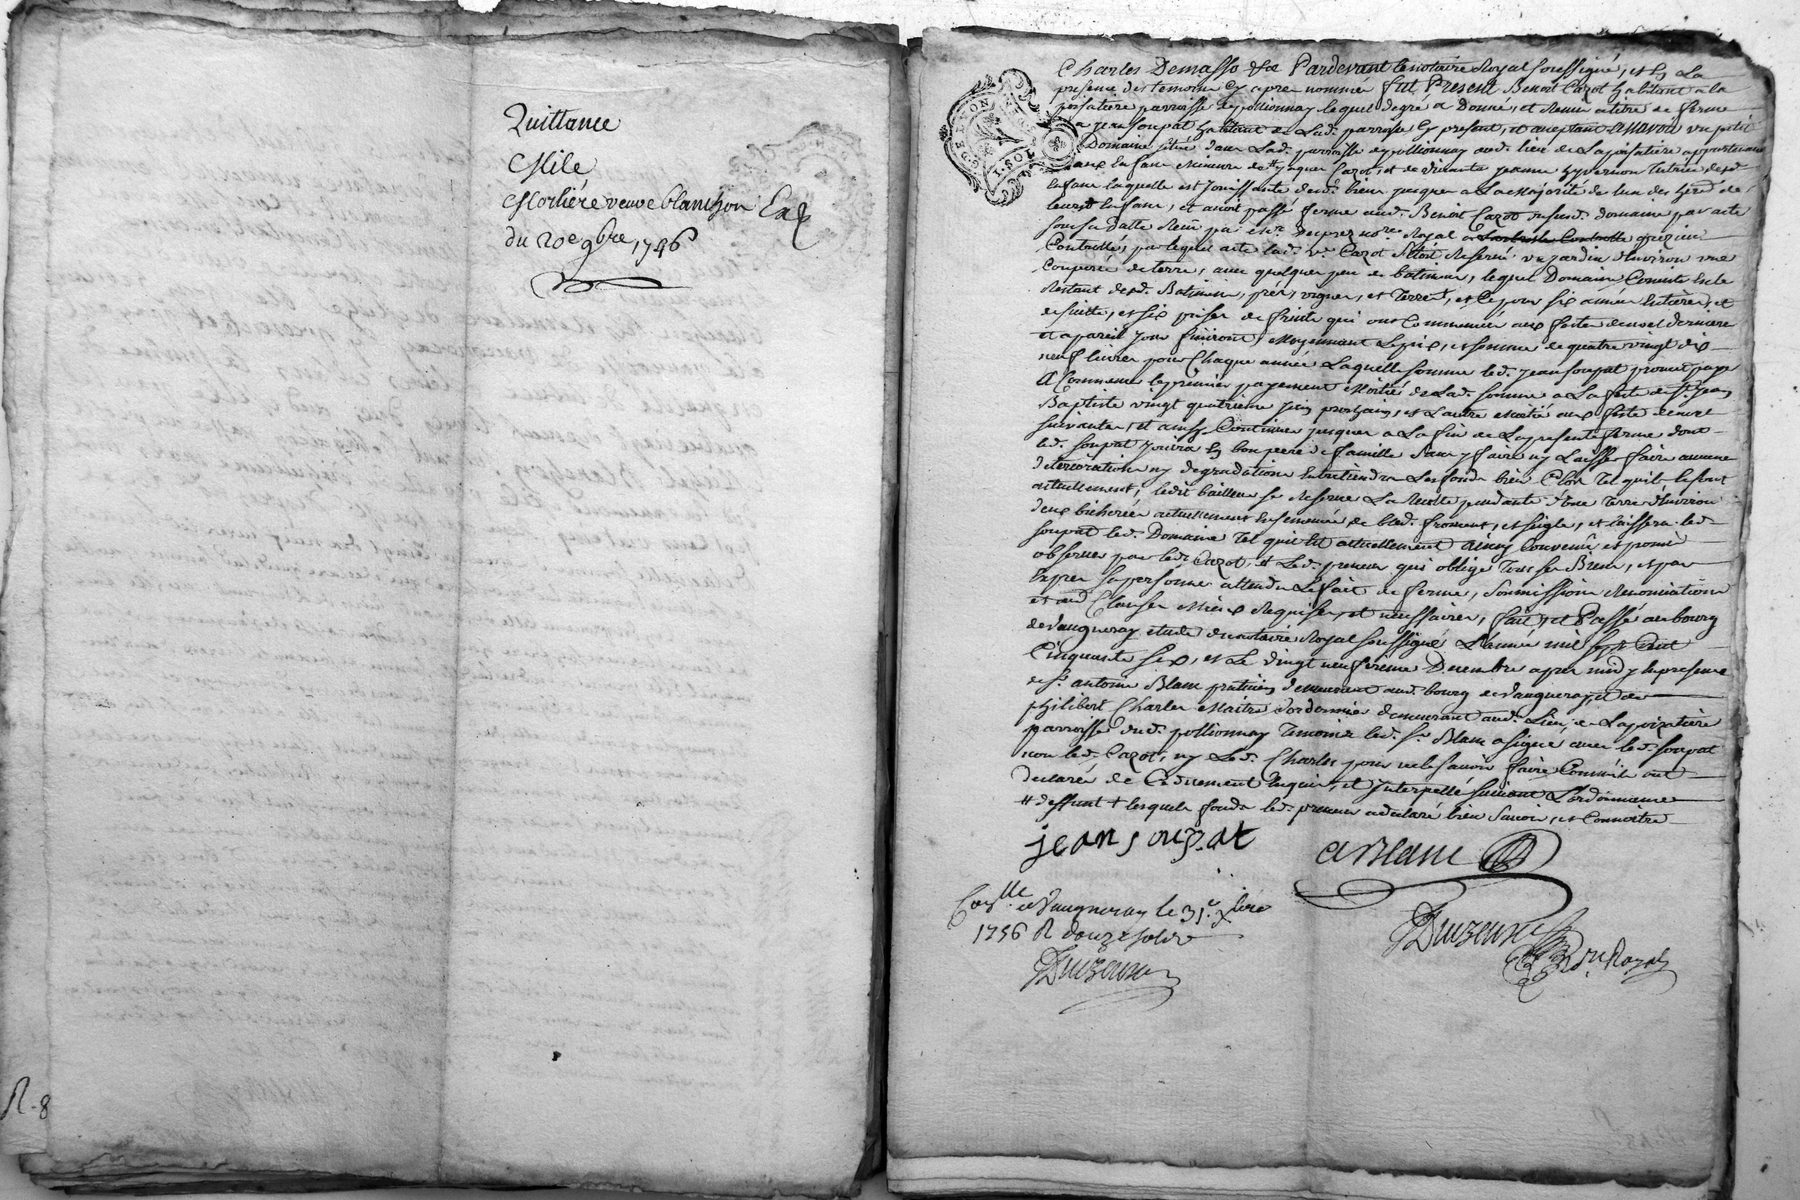 Quittance
Mile
Morliére veuve blanchon Exp
du 20e 9bre 1756
R. 8
G. DE LYON
1. SOL
Charles Demasso &a Pardevant le notaire Royal soussigné, et En La
presence des temoins Cy apres nommés fut Present Benoit Cazot habitant a la
poisatiere parroisse de pollionnay lequel de gré a Donné, et Remis a titre de ferme
a jean soupat habitant de Lad. parroisse Cy present, et aceptant assavoir un petit
Domaine situé dans Lad. parroisse de pollionnay aud. lieu de La poisatiere appartenant
aux Enfans Mineurs de # jacques Cazot, et de vivante jeanne hyvernon tutrice desd.
Enfans laquelle est jouissante desd. biens jusques a La Majorité de
leursd Enfans, et auroit passé ferme aud. Benoit Cazot dud. domaine par acte
sous sa datte Reçu par me notre Royal a
Controllé, par lequel acte lad. ve. Cazot s'étoit Reservé un jardin d'Environ une
Couperée de terre, avec quelque peu de batimens, lequel Domaine Consiste En le
Restant desd. Batimens, prés, vignes, et Terres +, et ce pour six années Entieres, et
de suitte, et six prises de fruits qui ont Commencé aux fetes de noel dernieres
et a pareil jour finiront, Moyennant Le prix, et somme de quatre vingt dix
neuf livres pour Chaque année Laquelle somme led. jean soupat promet payer
A Commencer le premier payement Moitié de Lad. somme a La fete de st. jean
Baptiste vingt quatrieme juin prochain, et L'autre Moitié aux fetes de noel
suivantes, et ainsy Continuer jusques a La fin de La presente ferme dont
led. soupat jouira En bon pere de famille sans y faire ny Laisser faire aucune
deterioration ny degradation Entretiendra Les fonds bien Clos Tel qu'ils le sont
actuellement, ledit bailleur se Reserve La Recolte pendante d'Une Terre d'Environ
deux bicherées actuellement Ensemencée de bled froment, et seigle, et laissera led.
soupat led. Domaine Tel qu'il Est actuellement ainsy Convenû et promis
observer par led. Cazot, et Led. preneur qui oblige Tous ses Biens, et par
Expres sa personne attendu Le fait de ferme, soumissions Renonciations
et aud. Clauses Mieux Requises, et necessaires, fait, et Passé au bourg
de vaugneray etude du notaire Royal soussigné L'année mil sept Cent
Cinquante six, et Le vingt neufvieme Decembre apres midy En presence
de sr. antoine Blanc praticien demeurant aud. bourg de vaugneray, et de
philibert Charles Maitre Cordonnier demeurant aud. Lieu de La poizatiere
parroisse dud. pollionnay Temoins led. sr. Blanc a signé avec led. soupat
non led. Cazot, ny Led. Charles pour ne le savoir faire Comme ils ont
declaré de Ce duement Enquis, et Interpellé suivant L'ordonnance
# deffunt + lesquels fonds led. preneur a declaré bien savoir, et Connoitre
jean soupat
A Blanc
Conllé a Vaugneray le 31e. Xbre
1756 R douze sols